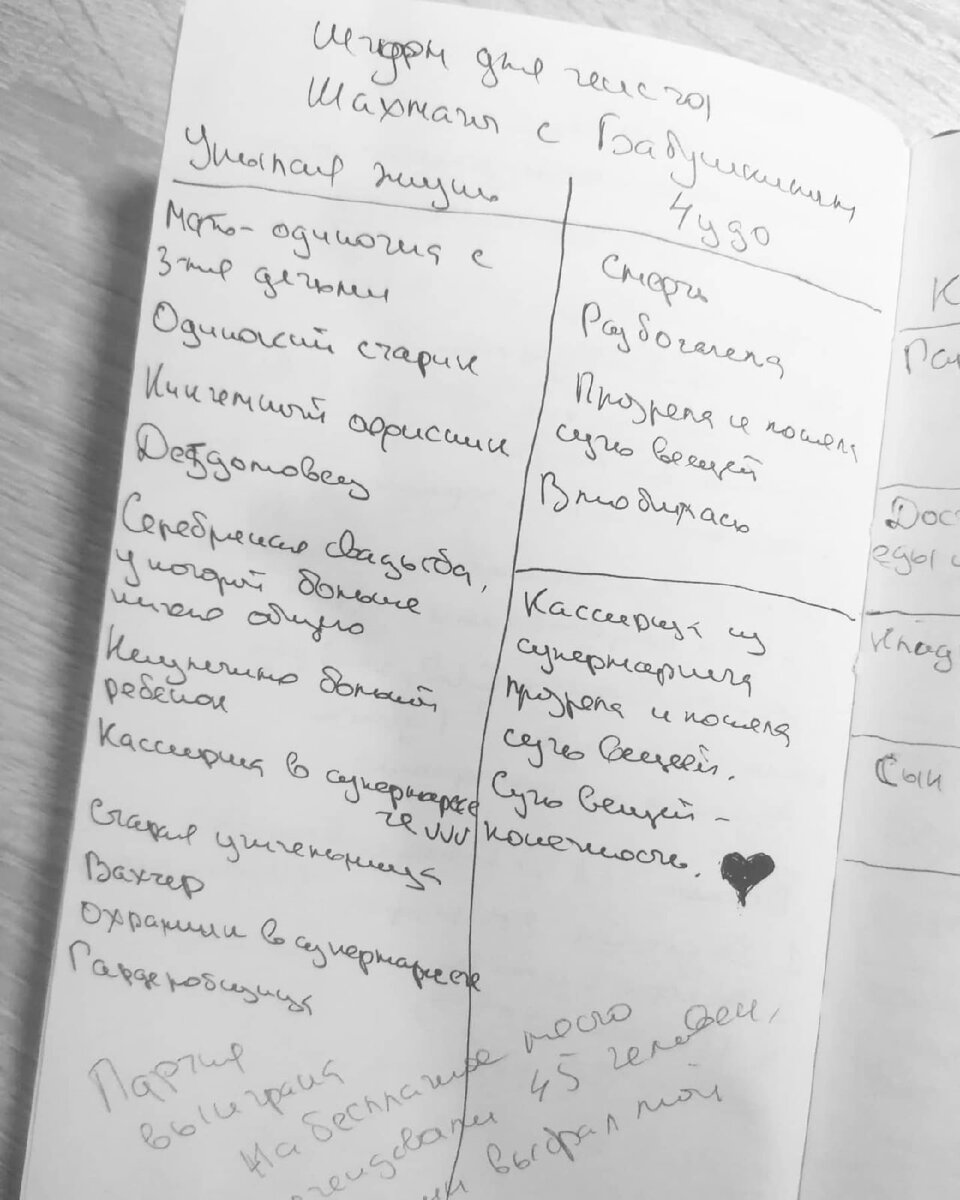 Шторм для текста
Шахматы с Бабушкиным
Унылая жизнь
Чудо
Мать-одиночка с
3-мя детьми
Одинокий старик
Никчемный офисник
Детдомовец
Серебряная свадьба,
у которой больше
ничего общего
Неизлечимо больной
ребенок
Кассирша в супермарке
те
Старая училельница
Вахтер
охранник в супермаркете
Гардеробщица
Смерть
Разбогатела
Прозрела и поняла
суть вещей
Влюбилась
Кассирша из
супермаркета
прозрела и поняла
суть вещей.
Суть вещей –
конечность. ♥
Партия
выиграна
На бесплатное место
45 человек,
выбрал мой
К
Пат
Дос
еды
клад
Сын